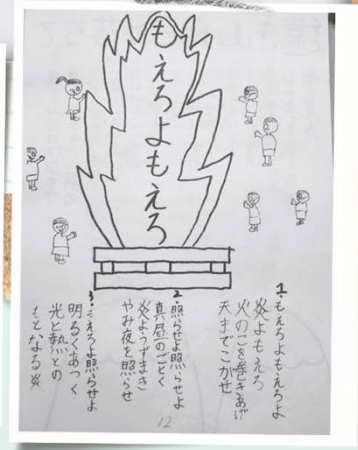 もえろよもえろ
1.もえろよもえろよ
炎よもえろ
火のこを巻きあげ
天までこがせ
2.照らせよ照らせよ
真昼のごとく
炎ようずまき
やみ夜を照らせ
3.もえろよ照らせよ
明るくあつく
光と熱との
もとなる炎
12